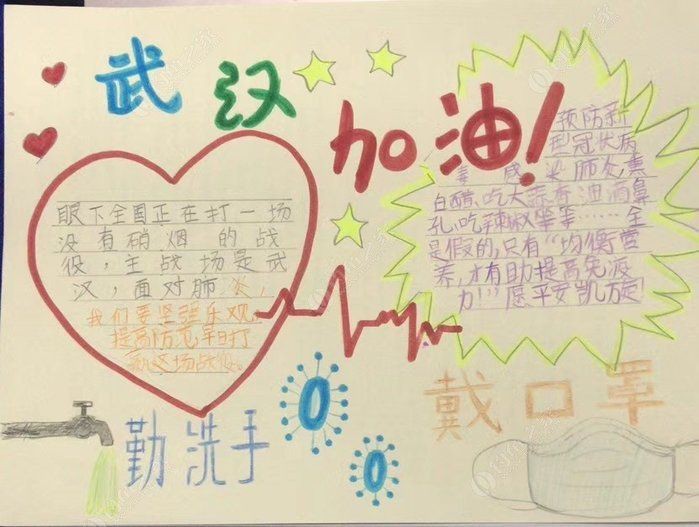 武汉
加油!
眼下全国正在打一场
没有硝烟的战
役，主战场是武
汉，面对肺炎，
我们要坚强乐观，
提高防范早日打
这场战役。
预防新
型冠状病
毒感染肺炎，熏
白醋、吃大蒜、香油滴鼻
孔、吃辣椒等等……全
是假的，只有“均衡营
养，才有助提高免疫
力!”愿平安凯旋!
勤洗手
戴口罩